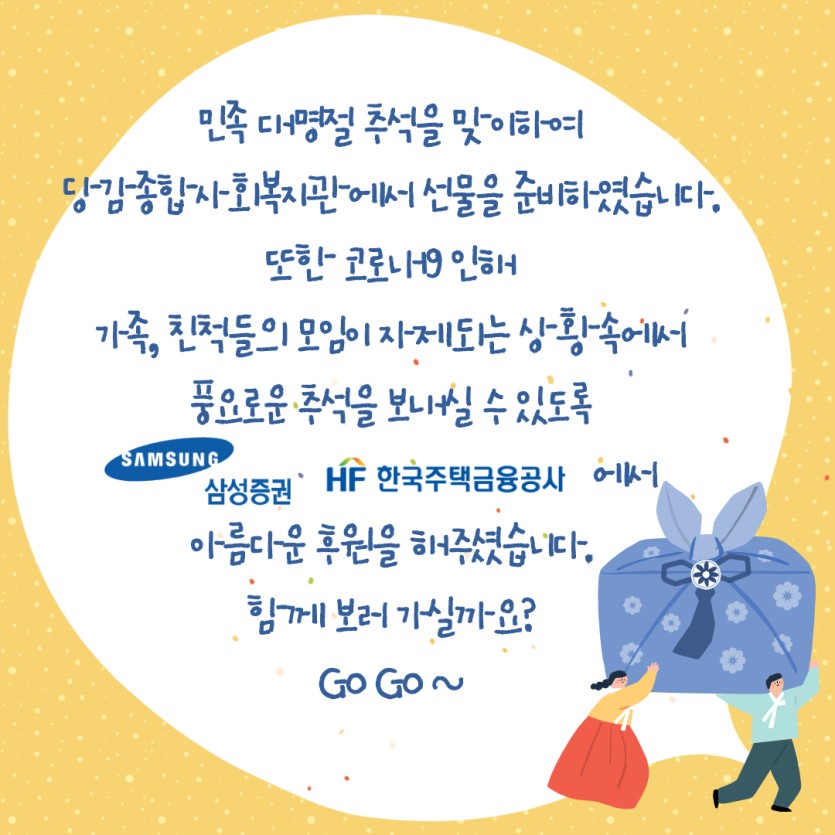 민족 대명절 추석을 맞이하여
당감종합사회복지관에서 선물을 준비하였습니다.
또한 코로나19 인해
가족, 친척들의 모임이 자제되는 상황속에서
풍요로운 추석을 보내실 수 있도록
SAMSUNG 삼성증권 HF 한국주택금융공사 에서
아름다운 후원을 해주셨습니다.
함께 보러 가실까요?
GO GO ~